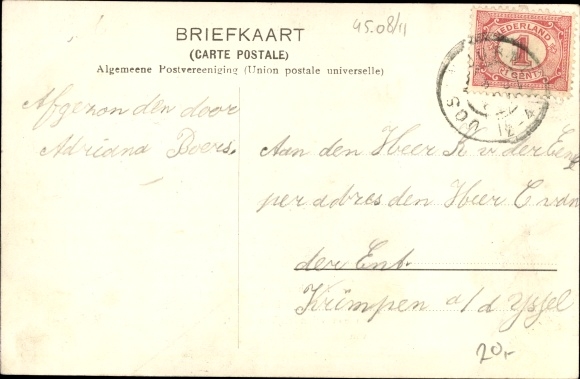 45.08/11
BRIEFKAART
(CARTE POSTALE)
Algemeene Postvereeniging (Union postale universelle)
NEDERLAND
1
CENT
Afgezonden door
Adriana Boers.
Aan den Heer K v der
per adres den Heer C van
der Ent.
Krimpen a/d Yssel
20,-